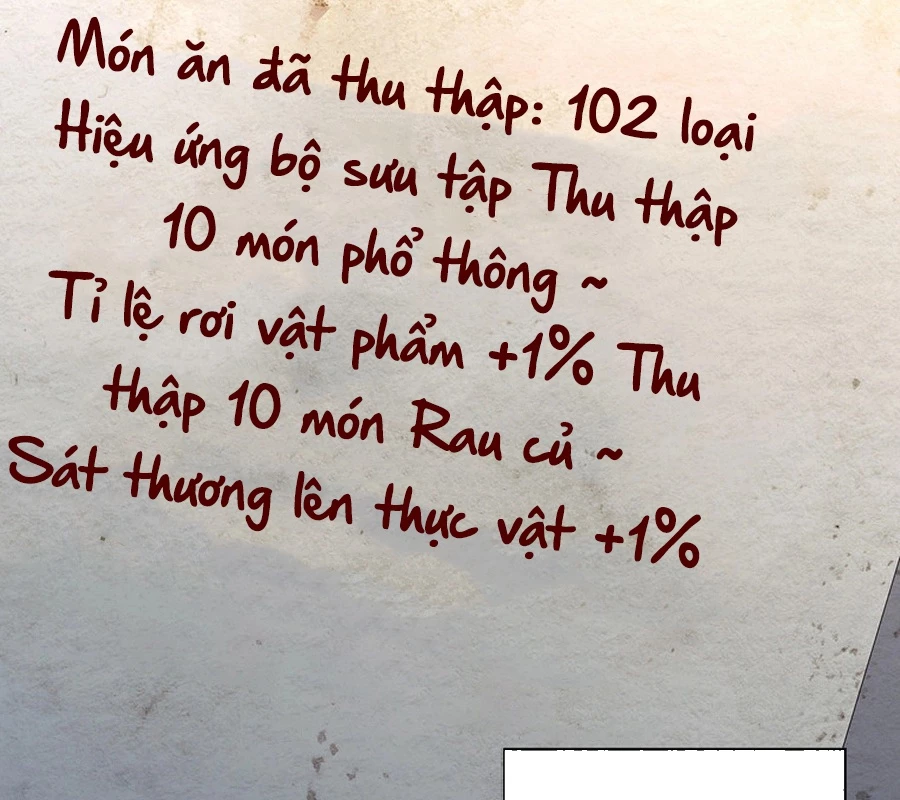 Món ăn đã thu thập: 102 loại
Hiệu ứng bộ sưu tập Thu thập
10 món phổ thông ~
Tỉ lệ rơi vật phẩm +1% Thu
thập 10 món Rau củ ~
Sát thương lên thực vật +1%